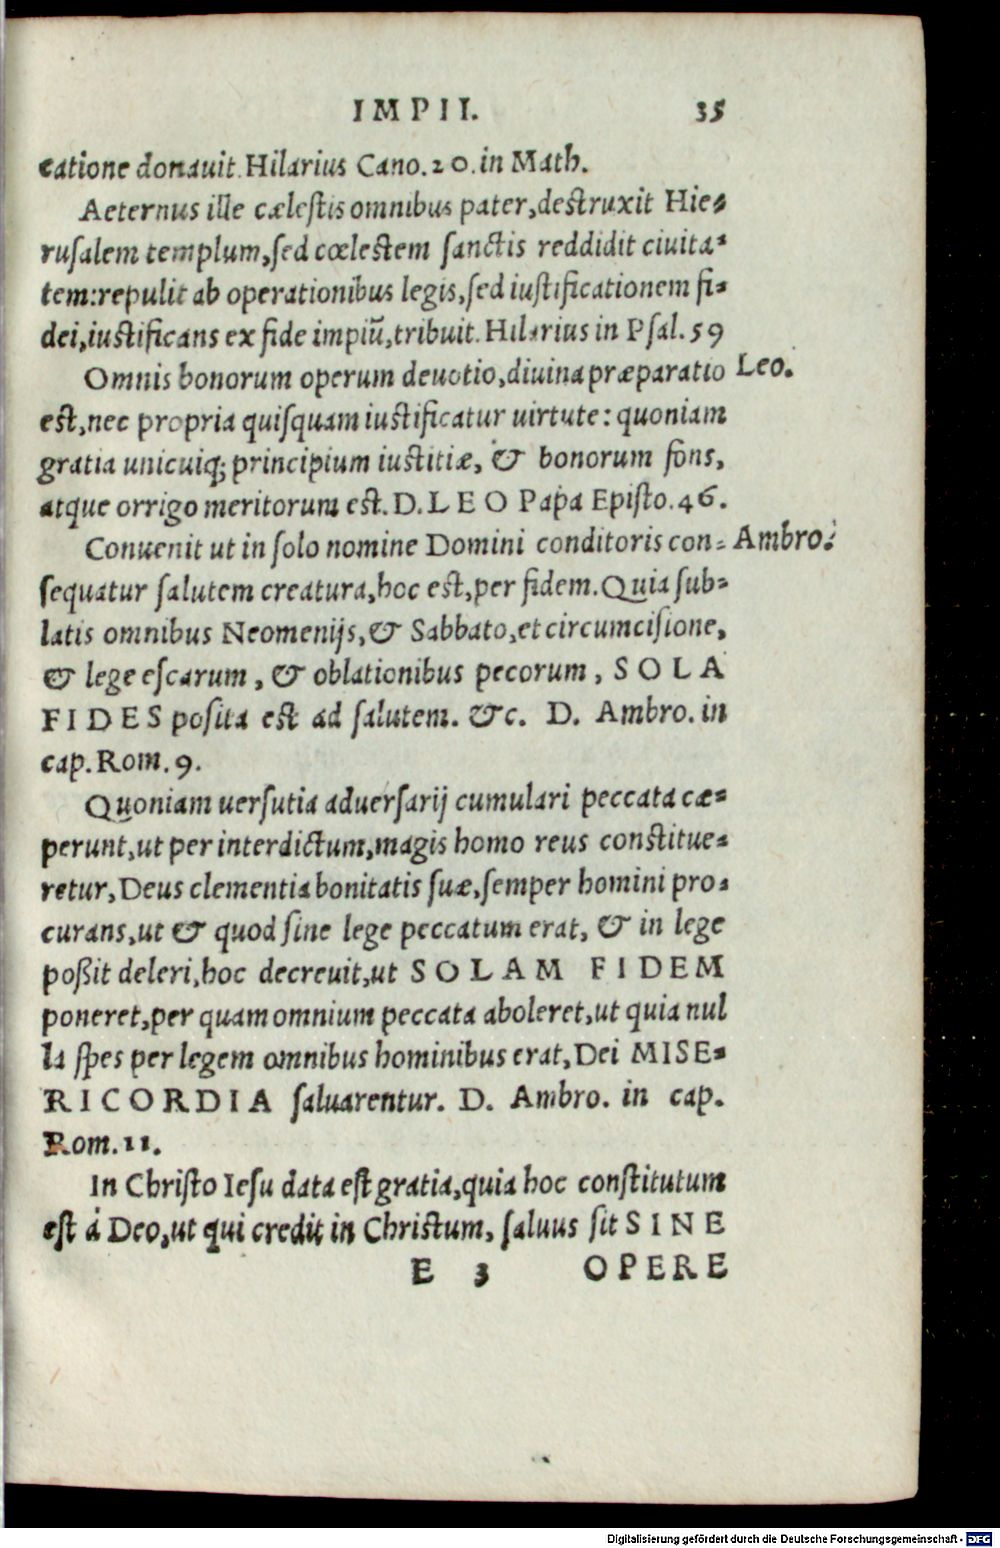 IMPII. 35
catione donauit. Hilarius Cano. 20. in Math.
Aeternus ille cælestis omnibus pater, destruxit Hie-
rusalem templum, sed cœlestem sanctis reddidit ciuita-
tem: repulit ab operationibus legis, sed iustificationem fi-
dei, iustificans ex fide impiũ, tribuit. Hilarius in Psal. 59
Omnis bonorum operum deuotio, diuina præparatio Leo.
est, nec propria quisquam iustificatur uirtute: quoniam
gratia unicuiq; principium iustitiæ, & bonorum fons,
atque orrigo meritorum est. D. LEO Papa Episto. 46.
Conuenit ut in solo nomine Domini conditoris con- Ambro:
sequatur salutem creatura, hoc est, per fidem. Quia sub-
latis omnibus Neomenijs, & Sabbato, et circumcisione,
& lege escarum, & oblationibus pecorum, SOLA
FIDES posita est ad salutem. &c. D. Ambro. in
cap. Rom. 9.
Quoniam uersutia aduersarij cumulari peccata cæ-
perunt, ut per interdictum, magis homo reus constitue-
retur, Deus clementia bonitatis suæ, semper homini pro-
curans, ut & quod sine lege peccatum erat, & in lege
poßit deleri, hoc decreuit, ut SOLAM FIDEM
poneret, per quam omnium peccata aboleret, ut quia nul
la spes per legem omnibus hominibus erat, Dei MISE-
RICORDIA saluarentur. D. Ambro. in cap.
Rom. 11.
In Christo Iesu data est gratia, quia hoc constitutum
est á Deo, ut qui credit in Christum, saluus sit SINE
E 3 OPERE
Digitalisierung gefördert durch die Deutsche Forschungsgemeinschaft - DFG